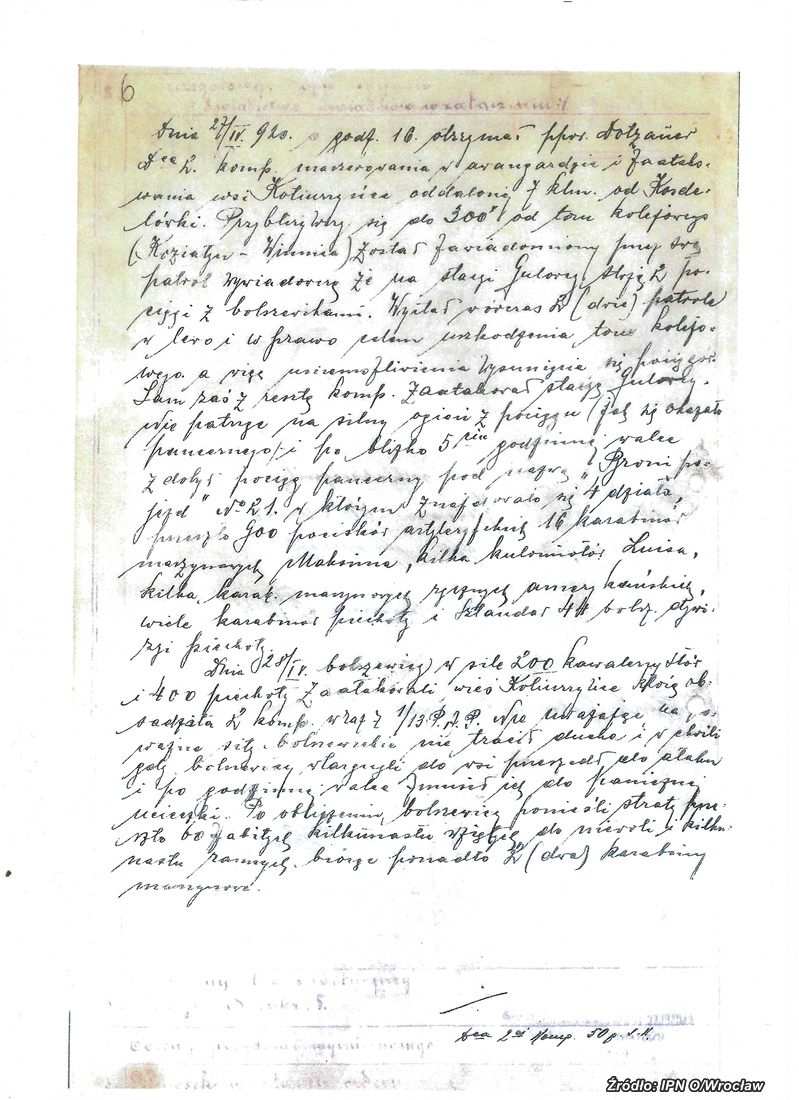 6
Dnia 27/IV. 920. o godz. 16. otrzymał ppor. Dotzauer
Dca 2. komp. maszerowania w awangardzie i zaatako-
wania wsi Koturzyńce oddaloną 7 klm. od Kosde-
lówki. Przybliżywszy się do 300x od toru kolejowego
(Koziatyn - Winnica) został zawiadomiony przez swą
patrol wywiadowczą że na stacji Gulowcy stoją 2 po-
ciągi z bolszewikami. Wysłał wówczas 2 (dwie) patrole
w lewo i w prawo celem uszkodzenia toru kolejo-
wego. a więc uniemożliwienia wysunięcia się pociągów.
Sam zaś z resztą komp. zaatakował stację Gulowcy.
Nie patrząc na silny ogień z pociągu (jak się okazało
pancernego) i po blizko 5 cio godzinnej walce
zdobył pociąg pancerny pod nazwą "Broni po-
jezd" No 21. w którym znajdowało się 4 działa,
przeszło 900 pocisków artyleryjskich 16 karabinów
maszynowych Maksima, kilka kulomiotów Luisa,
kilka karab. maszynowych ręcznych amerykańskich,
wiele karabinów piechoty i sztandar 44 bolsz. dywi-
zji piechoty.
Dnia 28/IV. bolszewicy w sile 200 kawalerzystów
i 400 piechoty zaatakowali wieś Koturzyńce którą ob-
sadzała 2 komp. wraz z 1/13 P.A.P. Nie uważając na po-
ważne siły bolszewickie nie tracił ducha i w chwili
gdy bolszewicy wtargnęli do wsi przeszedł do ataku
i po godzinnej walce zmusił ich do panicznej
ucieczki. Po obliczeniu bolszewicy ponieśli straty prze-
szło 60 zabitych kilkunastu wziętych do niewoli i kilku-
nastu rannych. biorąc ponadto 2 (dwa) karabiny
maszynowe.
Dca 2ej Komp. 50 p. S.K.
Źródło: IPN O/Wrocław